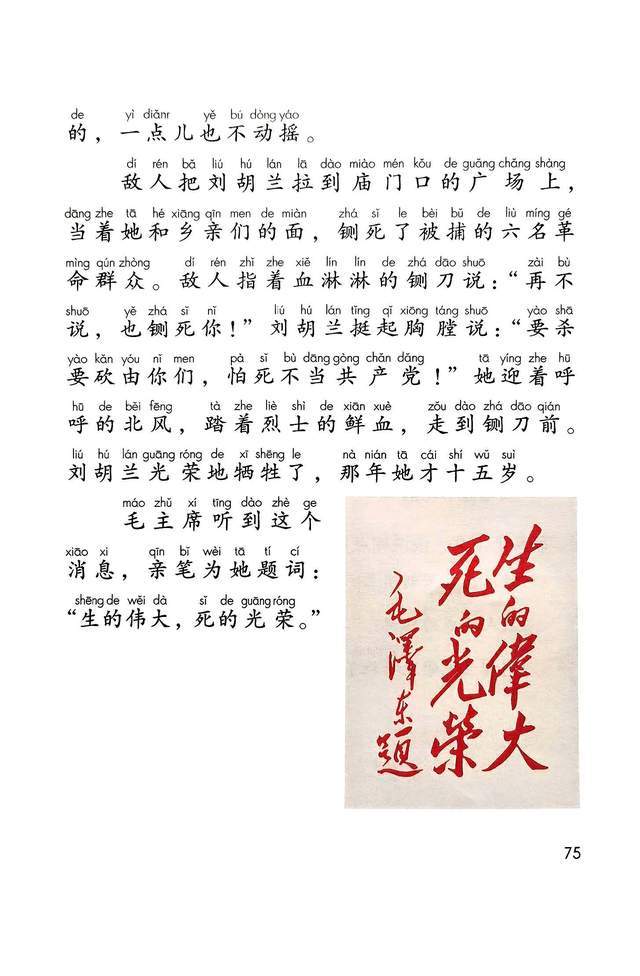 de yì diǎnr yě bú dòng yáo
的，一点儿也不动摇。
dí rén bǎ liú hú lán lā dào miào mén kǒu de guǎng chǎng shàng
敌人把刘胡兰拉到庙门口的广场上，
dāng zhe tā hé xiāng qīn men de miàn zhá sǐ le bèi bǔ de liù míng gé
当着她和乡亲们的面，铡死了被捕的六名革
mìng qún zhòng dí rén zhǐ zhe xiě lín lín de zhá dāo shuō zài bù
命群众。敌人指着血淋淋的铡刀说：“再不
shuō yě zhá sǐ nǐ liú hú lán tǐng qǐ xiōng táng shuō yào shā
说，也铡死你！”刘胡兰挺起胸膛说：“要杀
yào kǎn yóu nǐ men pà sǐ bù dāng gòng chǎn dǎng tā yíng zhe hū
要砍由你们，怕死不当共产党！”她迎着呼
hū de běi fēng tà zhe liè shì de xiān xuè zǒu dào zhá dāo qián
呼的北风，踏着烈士的鲜血，走到铡刀前。
liú hú lán guāng róng de xī shēng le nà nián tā cái shí wǔ suì
刘胡兰光荣地牺牲了，那年她才十五岁。
máo zhǔ xí tīng dào zhè ge
毛主席听到这个
xiāo xi qīn bǐ wèi tā tí cí
消息，亲笔为她题词：
shēng de wěi dà sǐ de guāng róng
“生的伟大，死的光荣。”
生的偉大
死的光榮
毛澤东题
75